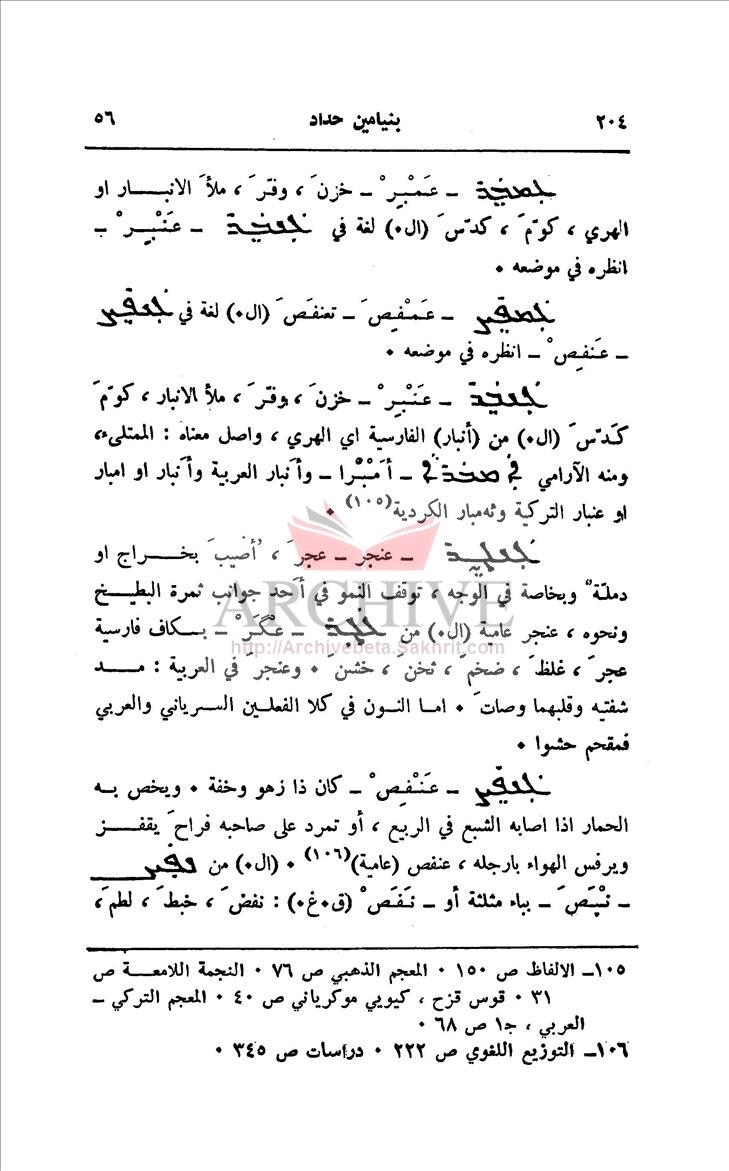 ٢٠٤ بنيامين حداد ٥٦
ـ عَمْبِرْ ـ خزنَ ، وفّرَ ، ملأَ الانبـار او
الهري ، كوّمَ ، كدّسَ (ال٠) لغة في ـ عَنْبِرْ ـ
انظره في موضعه ٠
ـ عَمْفِصَ ـ تعنفَصَ (ال٠) لغة في
ـ عَنفِصْ ـ انظره في موضعه ٠
ـ عَنْبِرْ ـ خزنَ ، وفّرَ ، ملأ الانبار ، كوّمَ
كَدّسَ (ال٠) من (أنبار) الفارسية اي الهري ، واصل معناه : الممتلىء،
ومنه الآرامي ـ أمْبْرا ـ وأنبار العربية وأنبار او امبار
او عنبار التركية وئەمبار الكردية(١٠٥) ٠
ـ عنجر ـ عجرَ ، أُصيبَ بخـراج او
دملـة وبخاصة في الوجه ، توقف النمو في أحد جوانب ثمرة البطيـخ
ونحوه ، عنجر عامية (ال٠) من ـ عْگَرْ ـ بـكاف فارسية
عجرَ ، غلظَ ، ضخمَ ، ثخنَ ، خشنَ ٠ وعنجرَ في العربية : مـد
شفتيه وقلبهما وصاتَ ٠ امـا النـون في كلا الفعلـين السـرياني والعربي
فمقحم حشوا ٠
ـ عَنْفِصْ ـ كان ذا زهو وخفة ٠ ويخص بـه
الحمار اذا اصابه الشبع في الربيع ، أو تمرد على صاحبه فراحَ يقفـز
ويرفس الهواء بارجله ، عنفص (عامية)(١٠٦) ٠ (ال٠) من
ـ نْپَصَ ـ بباء مثلثة أو ـ نَفَصْ (ق٠غ٠) : نفضَ ، خبطَ ، لطم،
١٠٥ـ الالفاظ ص ١٥٠ ٠ المعجم الذهبي ص ٧٦ ٠ النجمة اللامعـة ص
٣١ ٠ قوس قزح ، كيويي موكرياني ص ٤٠ ٠ المعجم التركي ـ
العربي ، جـ١ ص ٦٨ ٠
١٠٦ـ التوزيع اللغوي ص ٢٢٢ ٠ دراسات ص ٣٤٥ ٠
ARCHIVE
http://Archivebeta.Sakhrit.com